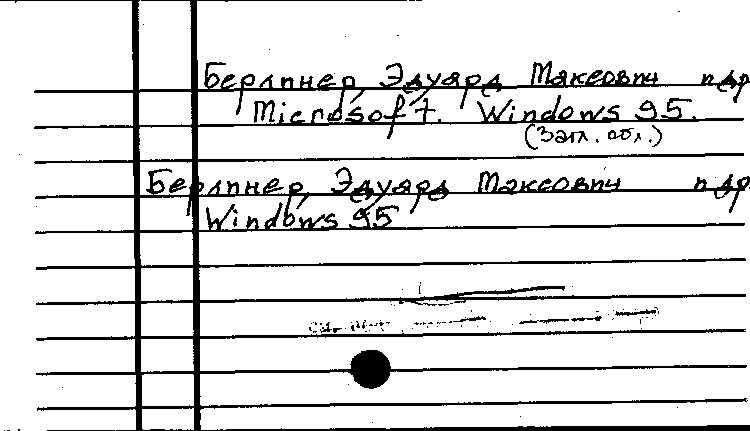 Берлинер, Эдуард Максович и др
Microsoft. Windows 95.
(Загл. обл.)
Берлинер, Эдуард Максович и др
Windows 95